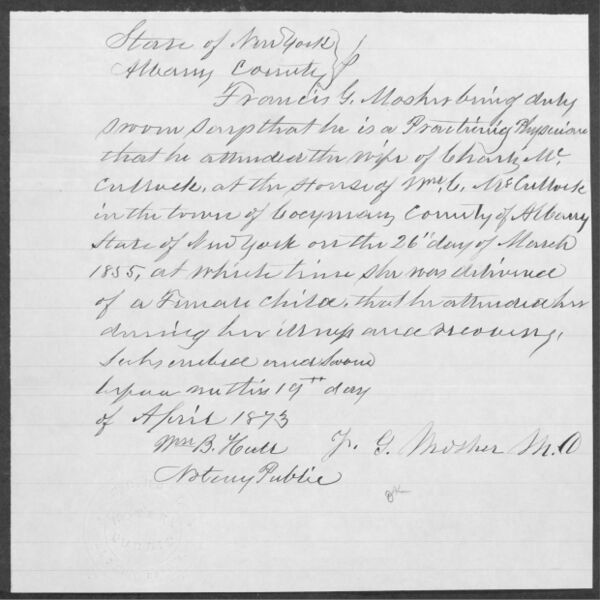 State of New York
Albany County
Francis G. Mosher being duly
sworn says that he is a Practicing Physician
that he attended the wife of Charles Mc
Cullock, at the House of Wm. C. McCullock
in the town of Coeymans County of Albany
State of New York on the 26" day of March
1855, at which time she was delivered
of a Female child, that he attended her
during her illness and recovery,
Subscribed and sworn
before me this 19th day
of April 1873
Wm B. Hall F. G. Mosher M.D
Notary Public